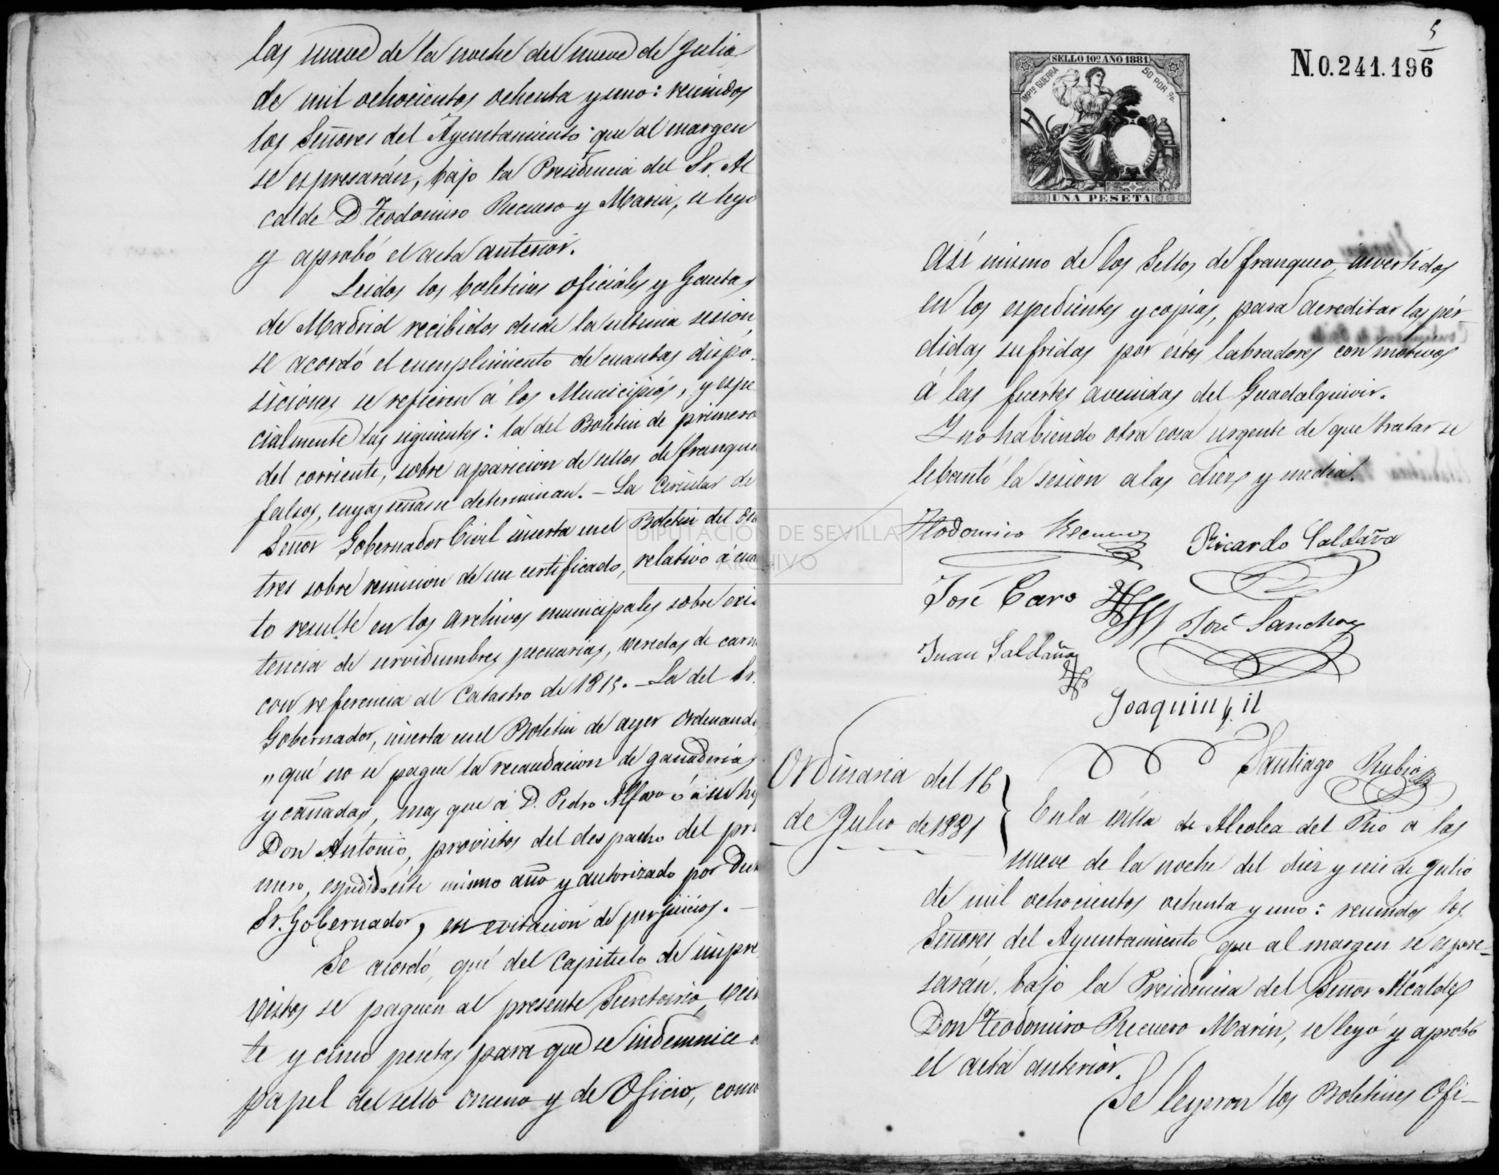 las nueve de la noche del nueve de Julio
de mil ochocientos ochenta y uno: reunidos
los Señores del Ayuntamiento que al margen
se espresarán, bajo la Presidencia del Sr. Al
calde D. Teodomiro Recuero y Marin, se leyó
y aprobó el acta anterior.
Leidos los boletines oficiales y Gacetas
de Madrid recibidos desde la ultima sesion,
se acordó el cumplimiento de cuantas dispo-
siciones se refieren á los Municipios, y espe
cialmente las siguientes: la del Boletin de primero
del corriente, sobre aparicion de sellos de franqueo
falsos, cuyas señas se determinan. - La Circular del
Señor Gobernador Civil inserta en el Boletin del
tres sobre remision de un certificado, relativo á cuan
to resulte en los Archivos municipales sobre exis
tencia de servidumbres pecuarias, veredas de carn
con referencia al Catastro de 1815. - La del Sr.
Gobernador, inserta en el Boletin de ayer ordenando
"que no se pague la recaudacion de ganaderías
y cañadas, mas que á D. Pedro Alfaro ó á su hijo
Don Antonio, provistos del despacho del pri
mero, espedido este mismo año y autorizado por
Sr. Gobernador, en evitacion de perjuicios. -
Se acordó, que del Capitulo de impre
vistos se paguen al presente Secretario, vein
te y cinco pesetas para que se indemnice
papel del sello once y de Oficio, como
5
N.0.241.196
SELLO 10º AÑO 1881
IMPTO GUERRA 50 POR %
UNA PESETA
Así mismo de los Sellos de franqueo, invertidos
en los espedientes y copias, para acreditar las pér-
didas sufridas por estos labradores con motivos
á las fuertes avenidas del Guadalquivir.
Y no habiendo otra cosa urgente de que tratar se
lebantó la sesion a las diez y media.
Teodomiro Recuero Ricardo Saldaña
José Caro José Sanchez
Juan Saldaña
Joaquin Gil
Santiago Rubio
Ordinaria del 16
de Julio de 1881
En la villa de Alcolea del Rio a las
nueve de la noche del diez y seis de Julio
de mil ochocientos ochenta y uno: reunidos los
Señores del Ayuntamiento que al margen se espre-
sarán, bajo la Presidencia del Señor Alcalde
Don Teodomiro Recuero Marin, se leyó y aprobó
el acta anterior.
Se leyeron los Boletines Ofi-
DIPUTACIÓN DE SEVILLA
ARCHIVO